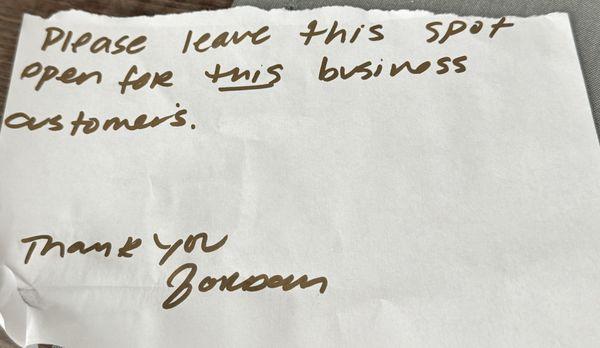 Please leave this spot
open for this business
customer's.
Thank you
Jordan